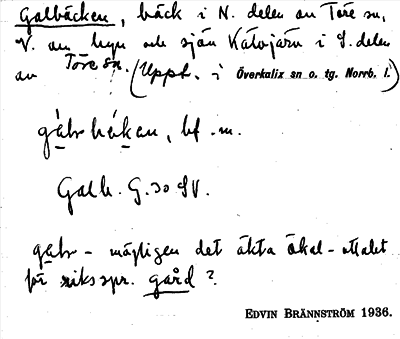 Galbäcken, bäck i N. delen av Töre sn,
V. om byn och sjön Kätvojärv i S. delen
av Töre sn. (Uppt. i Överkalix sn o. tg. Norrb. l.)
bf. m.
Galb. G. 30 SV.
möjligen det äkta ökal-uttalet
för rikspr. gård?
EDVIN BRÄNNSTRÖM 1936.